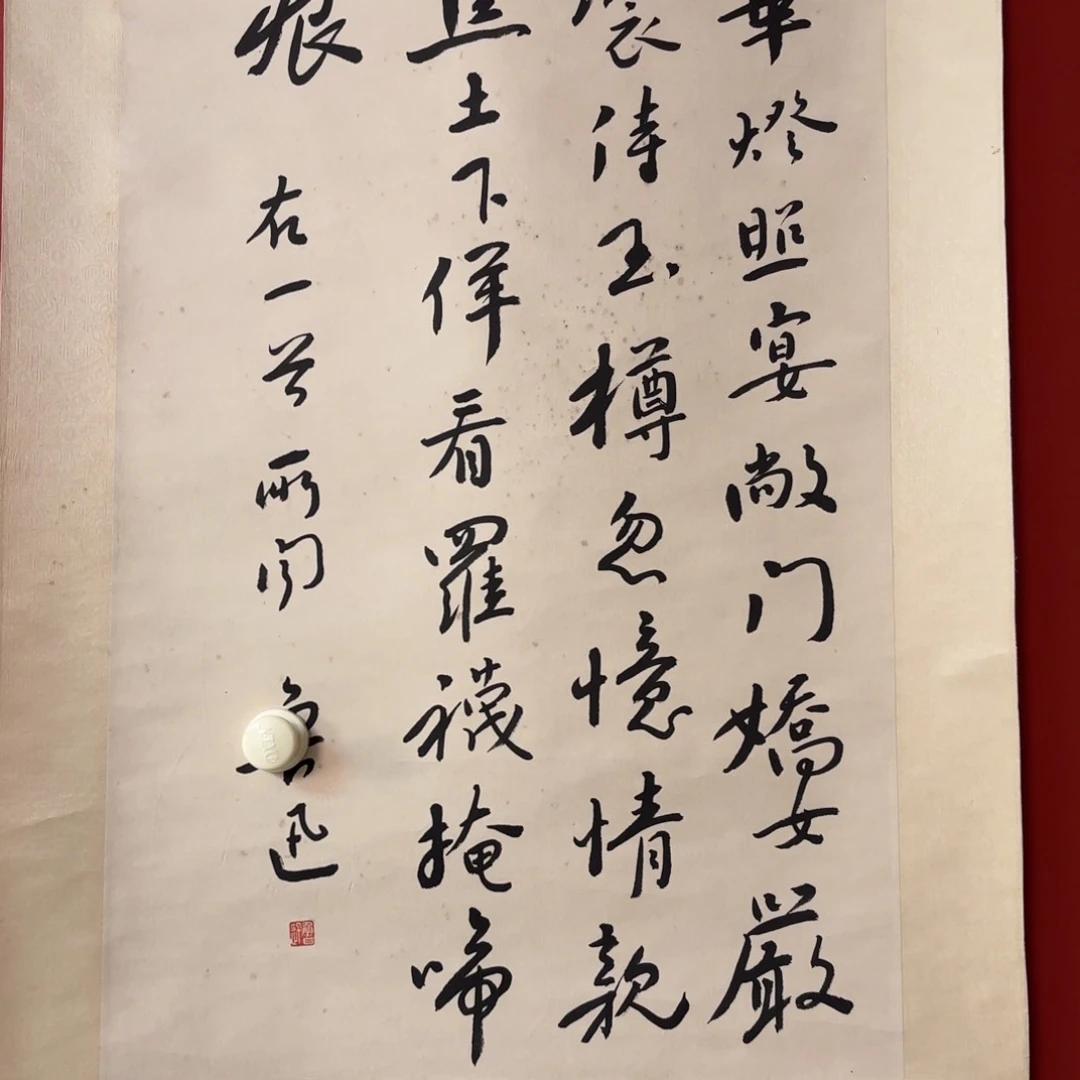 華燈照宴敞門嬌女嚴
裝侍玉樽忽憶情親
土下佯看羅襪掩啼
痕 右一首所聞 魯迅